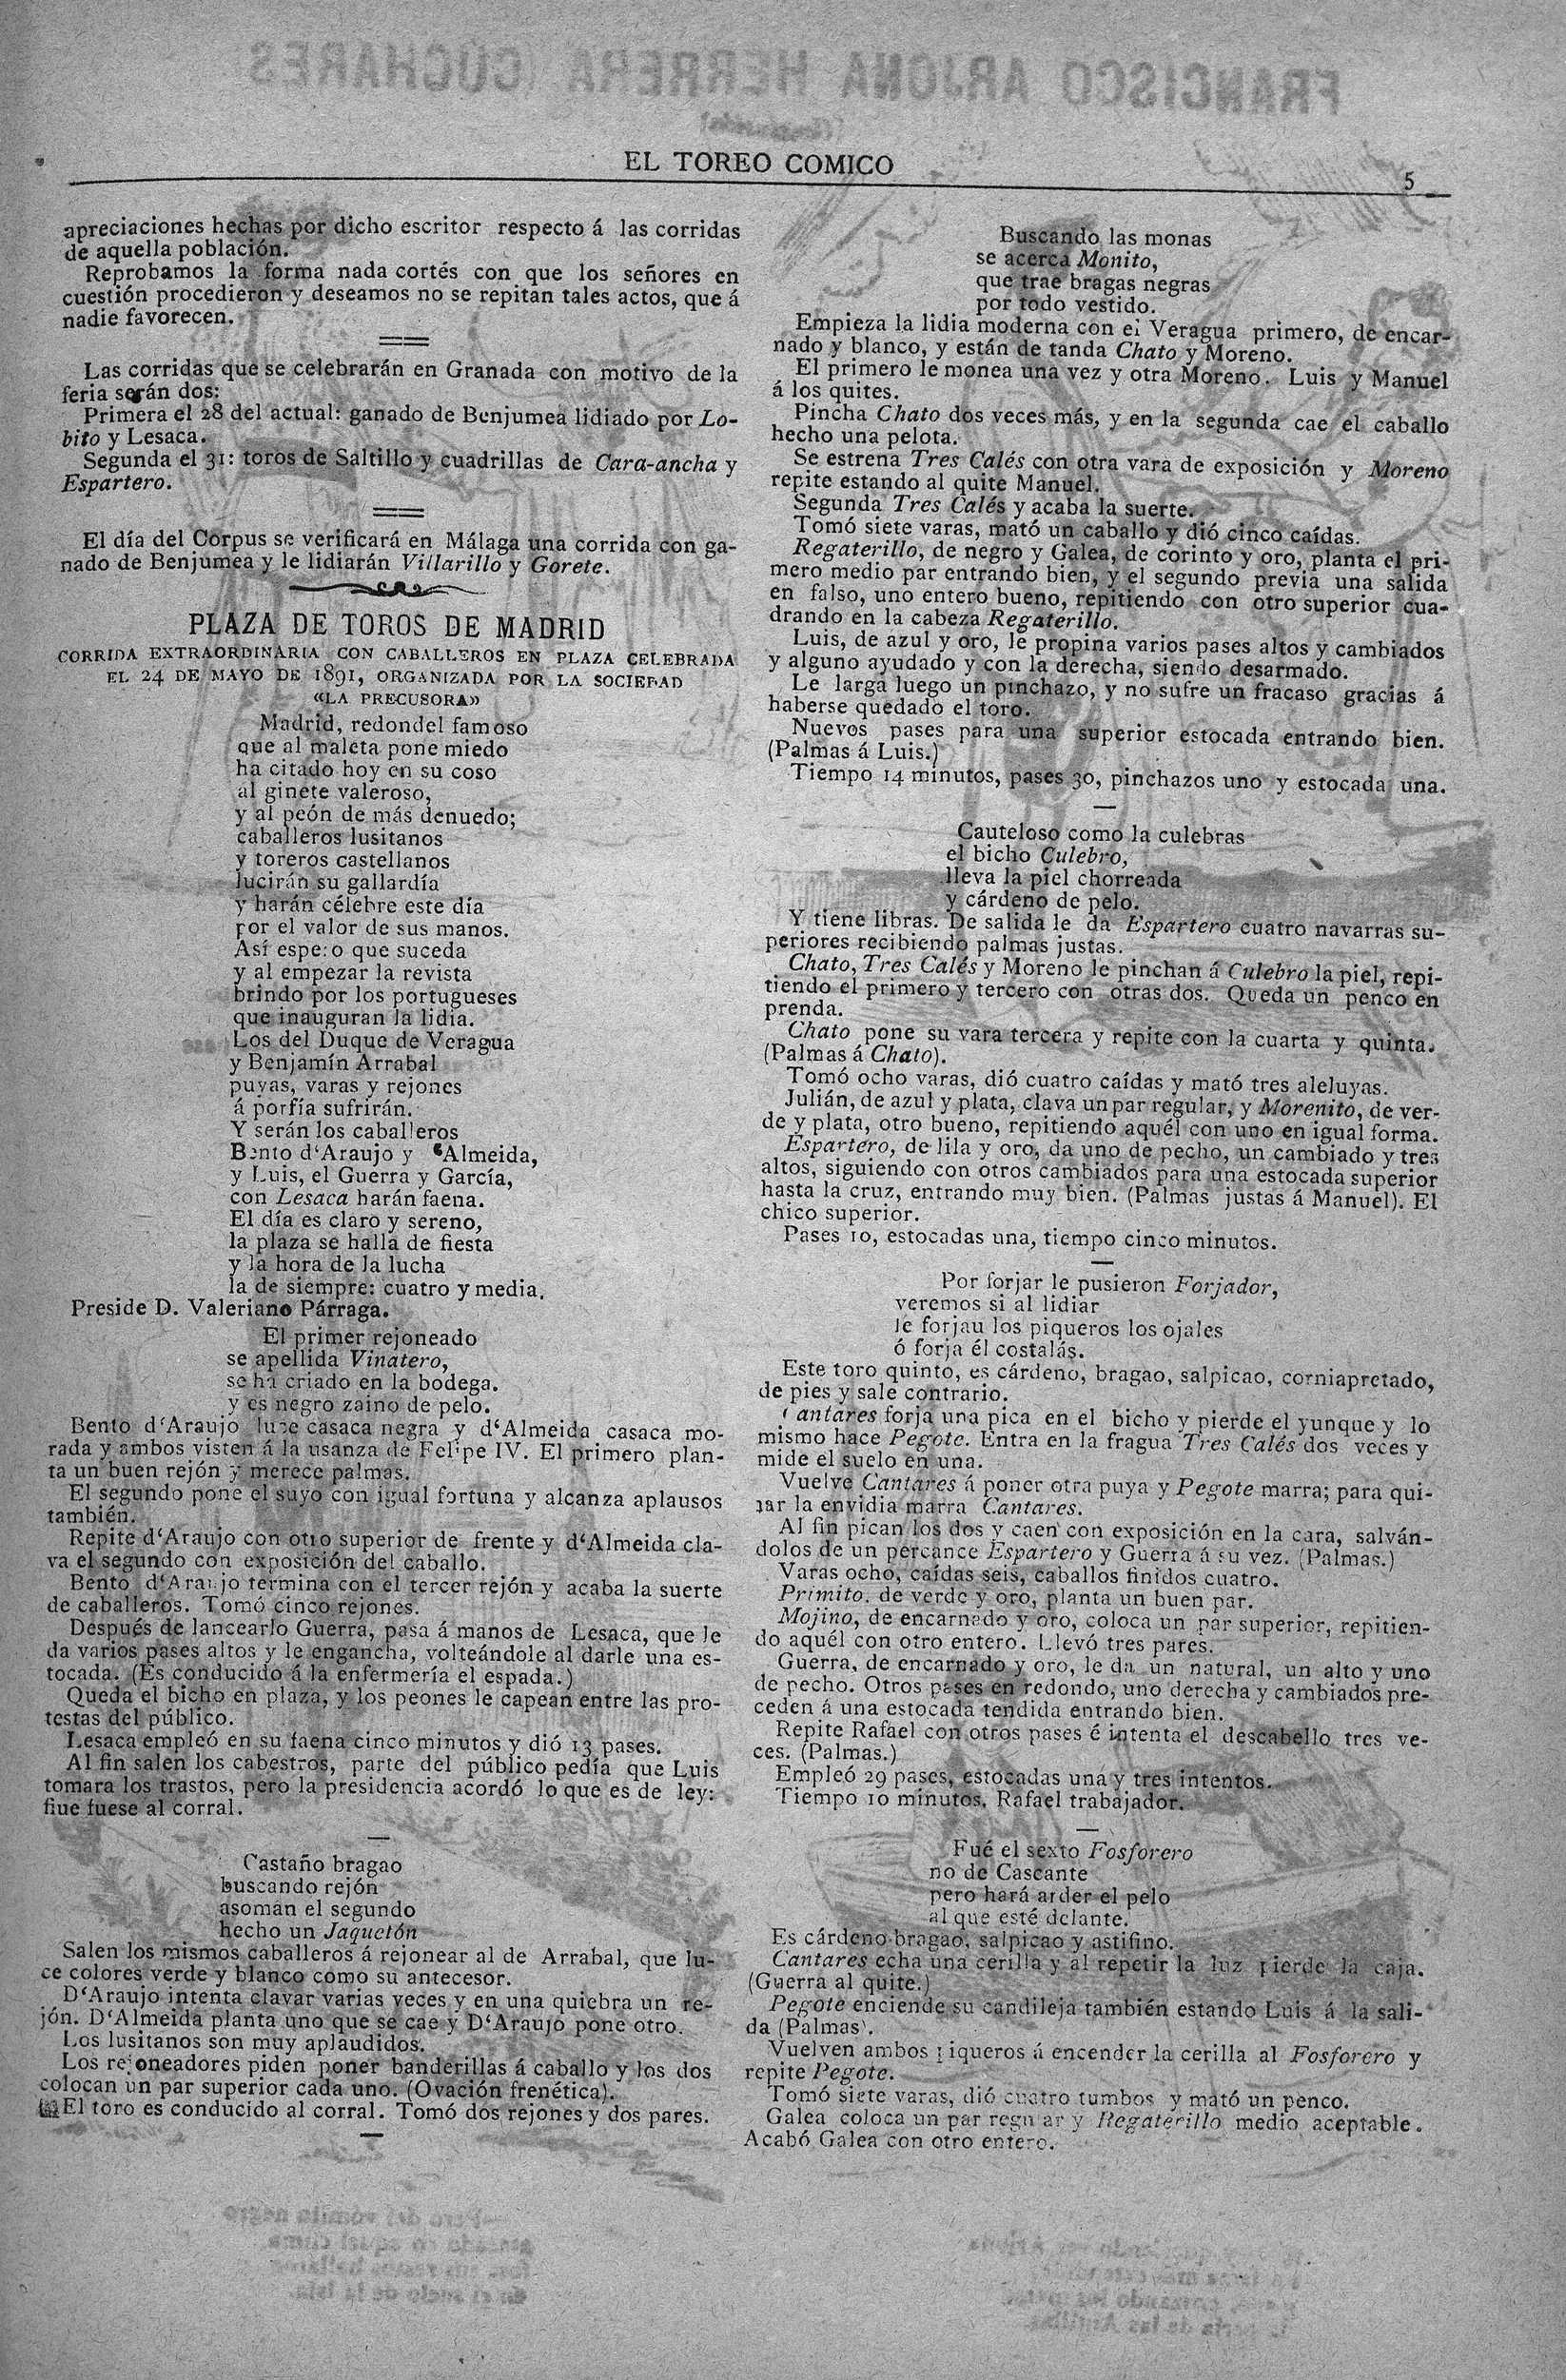 EL TOREO COMICO
5
apreciaciones hechas por dicho escritor respecto á las corridas
de aquella población.
Reprobamos la forma nada cortés con que los señores en
cuestión procedieron y deseamos no se repitan tales actos, que á
nadie favorecen.
Las corridas que se celebrarán en Granada con motivo de la
feria serán dos:
Primera el 28 del actual: ganado de Benjumea lidiado por Lo-
bito y Lesaca.
Segunda el 31: toros de Saltillo y cuadrillas de Cara-ancha y
Espartero.
El día del Corpus se verificará en Málaga una corrida con ga-
nado de Benjumea y le lidiarán Villarillo y Gorete.
PLAZA DE TOROS DE MADRID
CORRIDA EXTRAORDINARIA CON CABALLEROS EN PLAZA CELEBRADA
EL 24 DE MAYO DE 1891, ORGANIZADA POR LA SOCIEDAD
«LA PRECUSORA»
Madrid, redondel famoso
que al maleta pone miedo
ha citado hoy en su coso
al ginete valeroso,
y al peón de más denuedo;
caballeros lusitanos
y toreros castellanos
lucirán su gallardía
y harán célebre este día
por el valor de sus manos.
Así espero que suceda
y al empezar la revista
brindo por los portugueses
que inauguran la lidia.
Los del Duque de Veragua
y Benjamín Arrabal
puyas, varas y rejones
á porfía sufrirán.
Y serán los caballeros
Bento d‘Araujo y Almeida,
y Luis, el Guerra y García,
con Lesaca harán faena.
El día es claro y sereno,
la plaza se halla de fiesta
y la hora de la lucha
la de siempre: cuatro y media.
Preside D. Valeriano Párraga.
El primer rejoneado
se apellida Vinatero,
se ha criado en la bodega.
y es negro zaino de pelo.
Bento d‘Araujo luce casaca negra y d‘Almeida casaca mo-
rada y ambos visten á la usanza de Felipe IV. El primero plan-
ta un buen rejón y merece palmas.
El segundo pone el suyo con igual fortuna y alcanza aplausos
también.
Repite d‘Araujo con otro superior de frente y d‘Almeida cla-
va el segundo con exposición del caballo.
Bento d‘Araujo termina con el tercer rejón y acaba la suerte
de caballeros. Tomó cinco rejones.
Después de lancearlo Guerra, pasa á manos de Lesaca, que le
da varios pases altos y le engancha, volteándole al darle una es-
tocada. (Es conducido á la enfermería el espada.)
Queda el bicho en plaza, y los peones le capean entre las pro-
testas del público.
Lesaca empleó en su faena cinco minutos y dió 13 pases.
Al fin salen los cabestros, parte del público pedía que Luis
tomara los trastos, pero la presidencia acordó lo que es de ley:
fiue fuese al corral.
Castaño bragao
buscando rejón
asoman el segundo
hecho un Jaquetón
Salen los mismos caballeros á rejonear al de Arrabal, que lu-
ce colores verde y blanco como su antecesor.
D‘Araujo intenta clavar varias veces y en una quiebra un re-
jón. D‘Almeida planta uno que se cae y D‘Araujo pone otro.
Los lusitanos son muy aplaudidos.
Los rejoneadores piden poner banderillas á caballo y los dos
colocan un par superior cada uno. (Ovación frenética).
El toro es conducido al corral. Tomó dos rejones y dos pares.
Buscando las monas
se acerca Monito,
que trae bragas negras
por todo vestido.
Empieza la lidia moderna con el Veragua primero, de encar-
nado y blanco, y están de tanda Chato y Moreno.
El primero le monea una vez y otra Moreno. Luis y Manuel
á los quites.
Pincha Chato dos veces más, y en la segunda cae el caballo
hecho una pelota.
Se estrena Tres Calés con otra vara de exposición y Moreno
repite estando al quite Manuel.
Segunda Tres Calés y acaba la suerte.
Tomó siete varas, mató un caballo y dió cinco caídas.
Regaterillo, de negro y Galea, de corinto y oro, planta el pri-
mero medio par entrando bien, y el segundo previa una salida
en falso, uno entero bueno, repitiendo con otro superior cua-
drando en la cabeza Regaterillo.
Luis, de azul y oro, le propina varios pases altos y cambiados
y alguno ayudado y con la derecha, siendo desarmado.
Le larga luego un pinchazo, y no sufre un fracaso gracias á
haberse quedado el toro.
Nuevos pases para una superior estocada entrando bien.
(Palmas á Luis.)
Tiempo 14 minutos, pases 30, pinchazos uno y estocada una.
Cauteloso como la culebras
el bicho Culebro,
lleva la piel chorreada
y cárdeno de pelo.
Y tiene libras. De salida le da Espartero cuatro navarras su-
periores recibiendo palmas justas.
Chato, Tres Calés y Moreno le pinchan á Culebro la piel, repi-
tiendo el primero y tercero con otras dos. Queda un penco en
prenda.
Chato pone su vara tercera y repite con la cuarta y quinta.
(Palmas á Chato).
Tomó ocho varas, dió cuatro caídas y mató tres aleluyas.
Julián, de azul y plata, clava un par regular, y Morenito, de ver-
de y plata, otro bueno, repitiendo aquél con uno en igual forma.
Espartero, de lila y oro, da uno de pecho, un cambiado y tres
altos, siguiendo con otros cambiados para una estocada superior
hasta la cruz, entrando muy bien. (Palmas justas á Manuel). El
chico superior.
Pases 10, estocadas una, tiempo cinco minutos.
Por forjar le pusieron Forjador,
veremos si al lidiar
le forjau los piqueros los ojales
ó forja él costalás.
Este toro quinto, es cárdeno, bragao, salpicao, corniapretado,
de pies y sale contrario.
Cantares forja una pica en el bicho y pierde el yunque y lo
mismo hace Pegote. Entra en la fragua Tres Calés dos veces y
mide el suelo en una.
Vuelve Cantares á poner otra puya y Pegote marra; para qui-
tar la envidia marra Cantares.
Al fin pican los dos y caen con exposición en la cara, salván-
dolos de un percance Espartero y Guerra á su vez. (Palmas.)
Varas ocho, caídas seis, caballos finidos cuatro.
Primito, de verde y oro, planta un buen par.
Mojino, de encarnado y oro, coloca un par superior, repitien-
do aquél con otro entero. Llevó tres pares.
Guerra, de encarnado y oro, le da un natural, un alto y uno
de pecho. Otros pases en redondo, uno derecha y cambiados pre-
ceden á una estocada tendida entrando bien.
Repite Rafael con otros pases é intenta el descabello tres ve-
ces. (Palmas.)
Empleó 29 pases, estocadas una y tres intentos.
Tiempo 10 minutos. Rafael trabajador.
Fué el sexto Fosforero
no de Cascante
pero hará arder el pelo
al que esté delante.
Es cárdeno bragao, salpicao y astifino.
Cantares echa una cerilla y al repetir la luz pierde la caja.
(Guerra al quite.)
Pegote enciende su candileja también estando Luis á la sali-
da (Palmas).
Vuelven ambos piqueros á encender la cerilla al Fosforero y
repite Pegote.
Tomó siete varas, dió cuatro tumbos y mató un penco.
Galea coloca un par regular y Regaterillo medio aceptable.
Acabó Galea con otro entero.